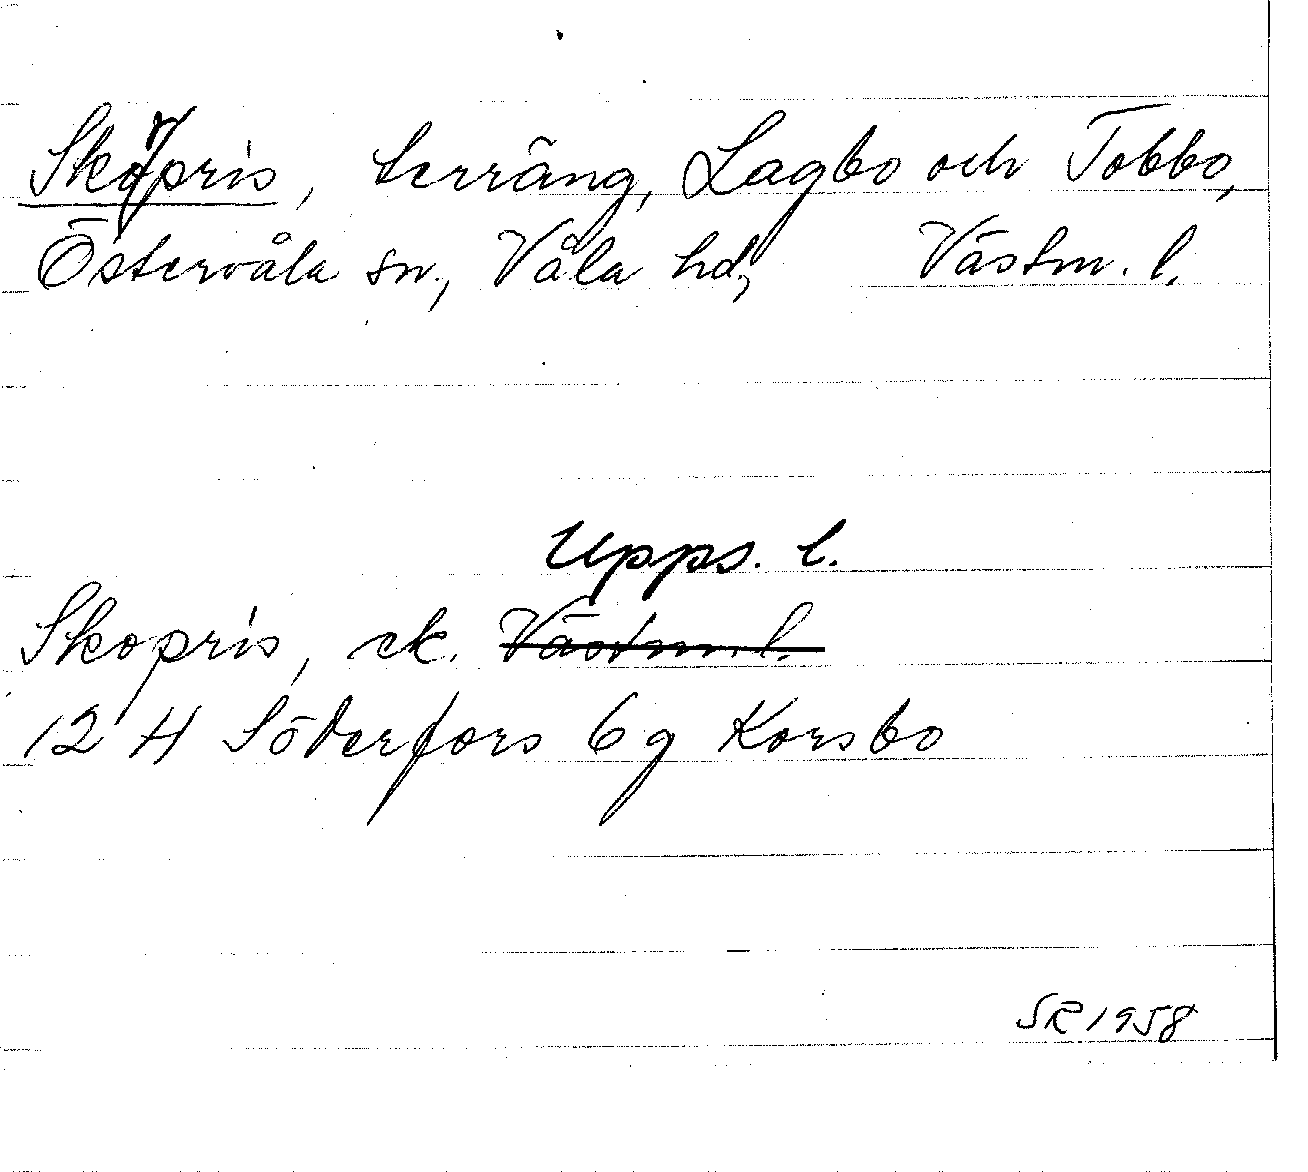 Skopris, terräng, Lagbo och Tobbo,
Östervåla sn, Våla hd, Västm. l.
Upps. l.
Skopris, ek. Västm. l.
12 H Söderfors 6 g Korsbo
SR 1958